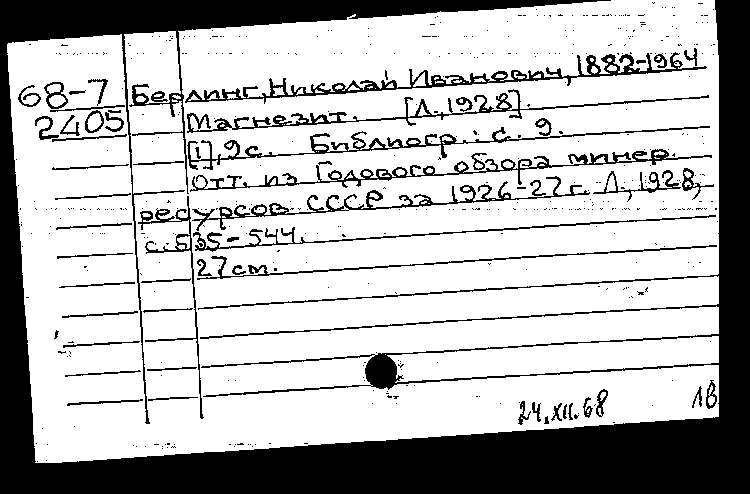 68-7 Берлинг, Николай Иванович, 1882-1964
2405 Магнезит. [Л., 1928].
[1], 9 с. Библиогр.: с. 9.
Отт. из Годового обзора минер.
ресурсов СССР за 1926-27 г. Л., 1928,
с. 535-544.
27 см.
24.XII.68 1В